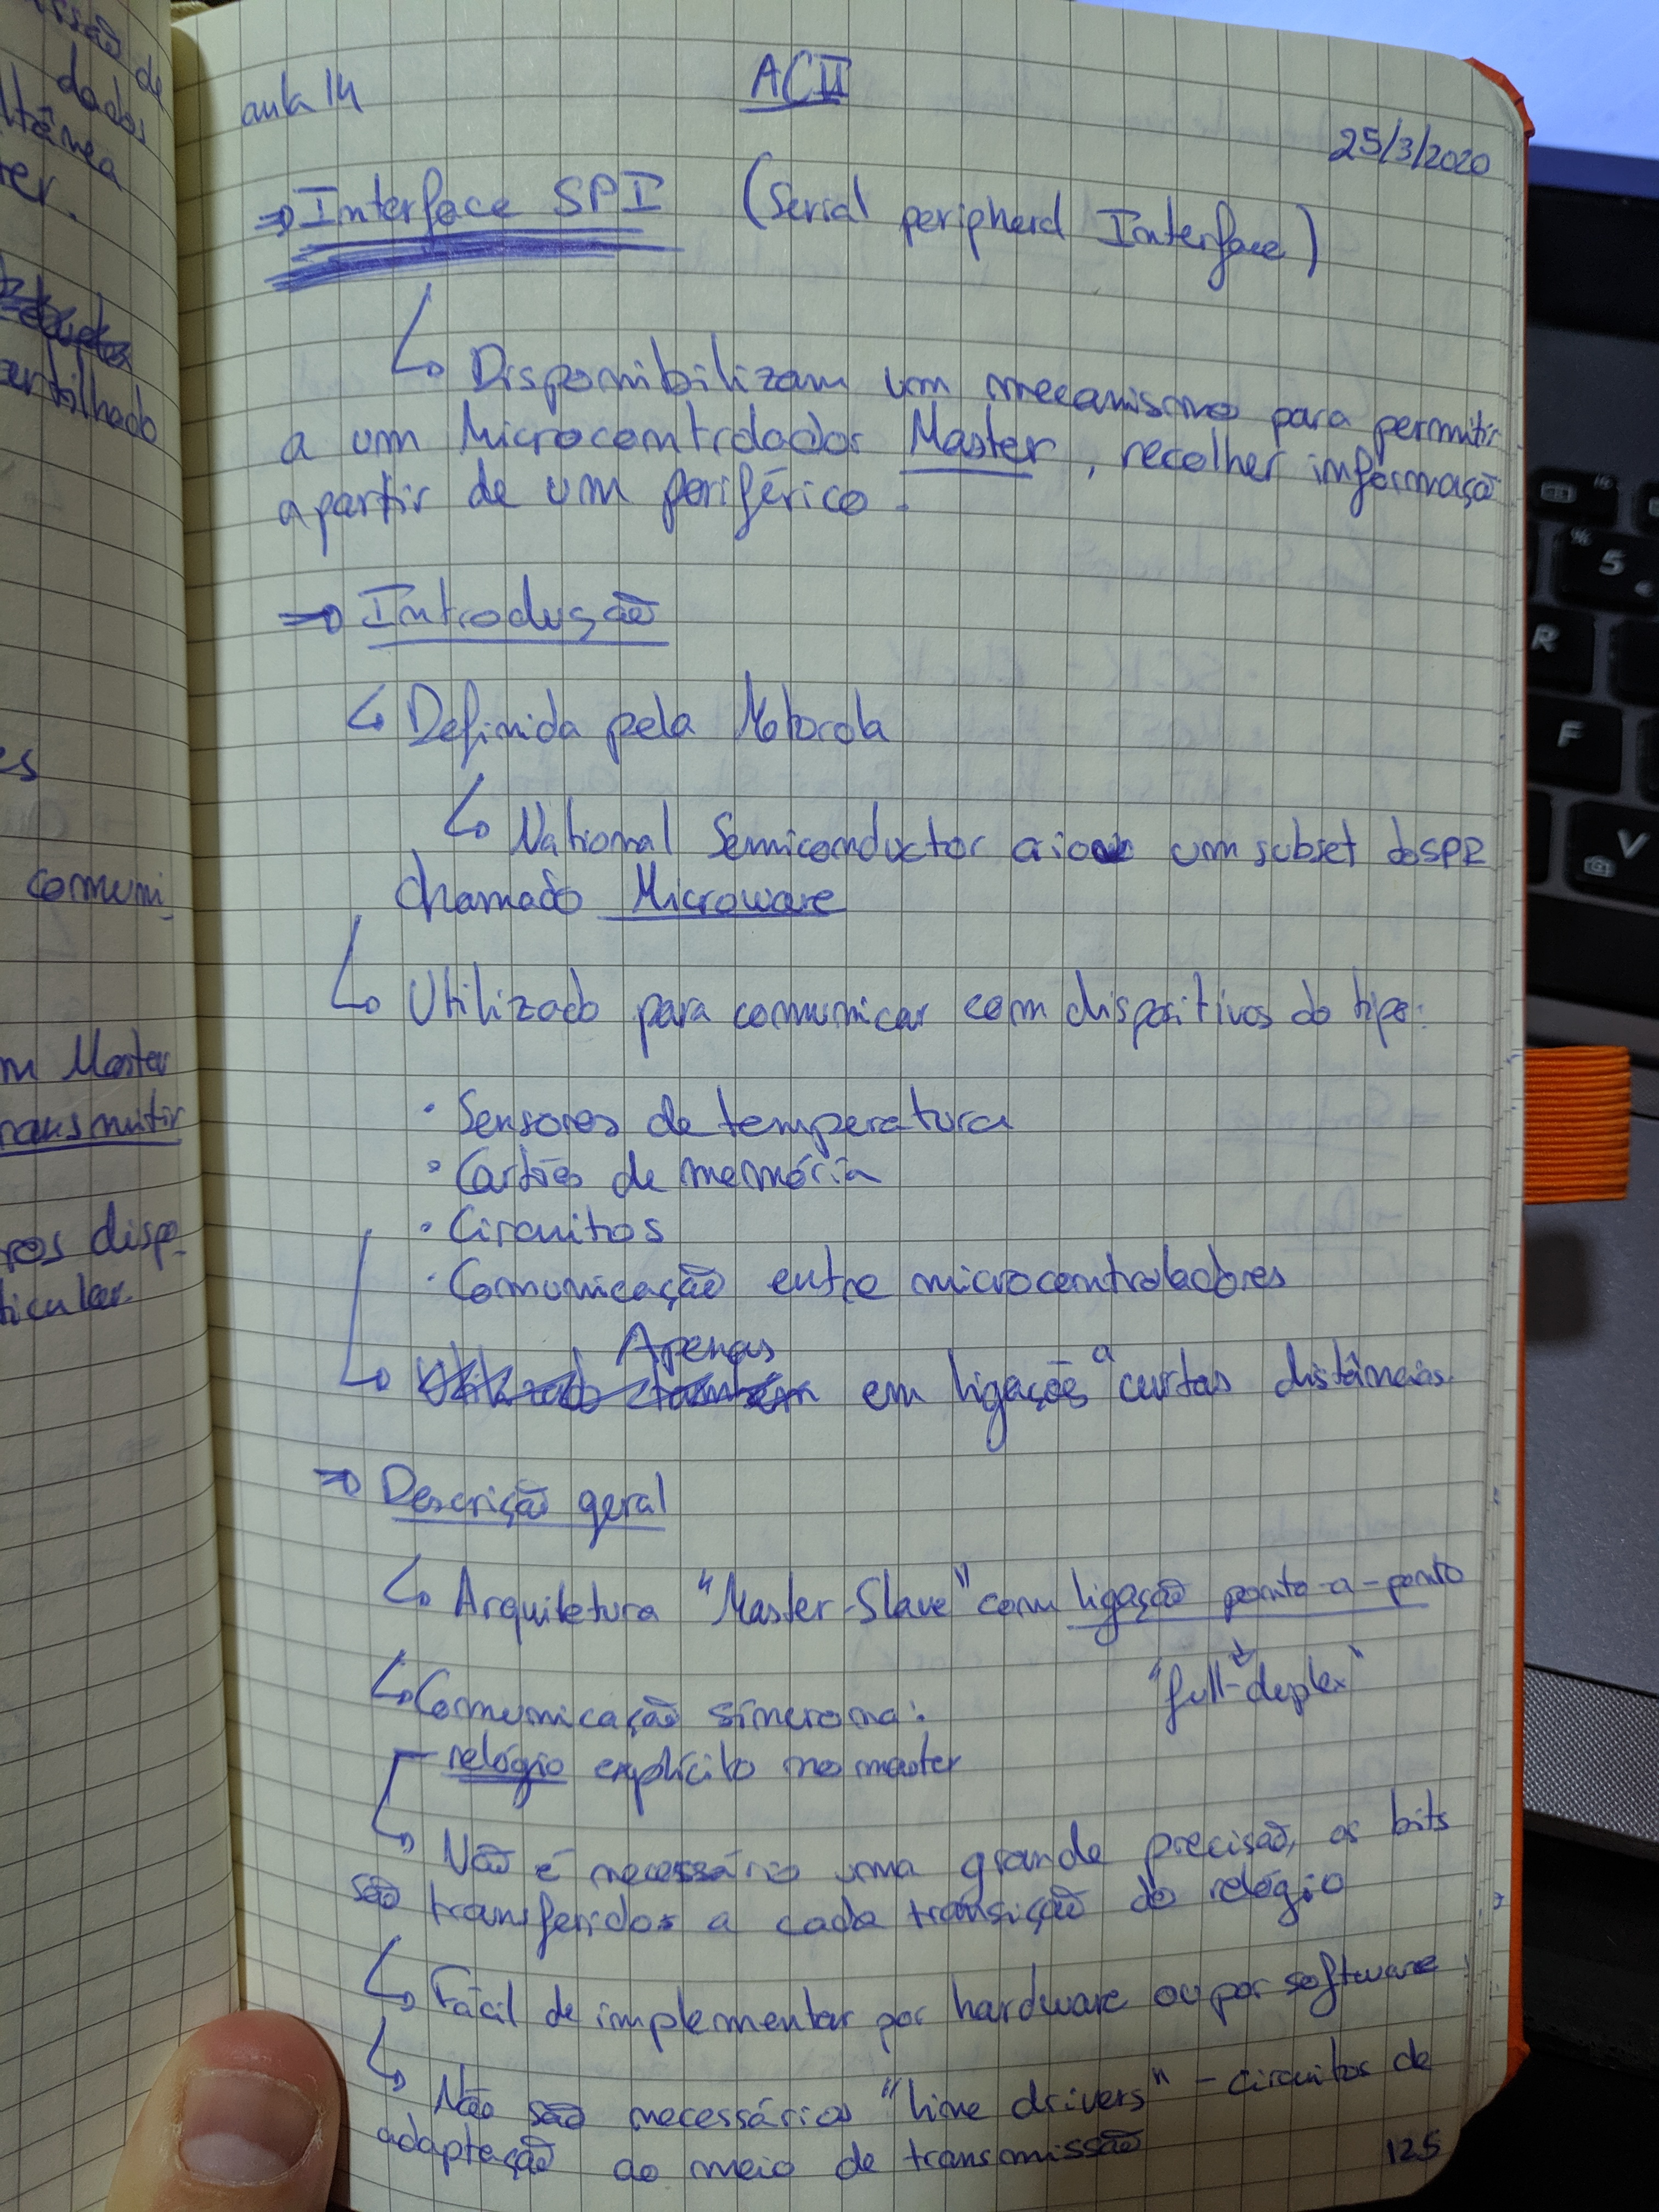 ssão de
dados
ltânea
ter.
artilhado
es
comuni-
m Master
ransmitir
ros dispo-
ticular.
aula 14
ACII
25/3/2020
⇒ Interface SPI (Serial peripheral Interface)
↳ Disponibilizam um mecanismo para permitir
a um Microcontrolador Master, recolher informação
a partir de um periférico.
⇒ Introdução
↳ Definida pela Motorola
↳ National Semiconductor criou um subset do SPI
chamado Microware
↳ Utilizado para comunicar com dispositivos do tipo:
· Sensores de temperatura
· Cartões de memória
· Circuitos
· Comunicação entre microcontroladores
Apenas
↳ Utilizado também em ligações a curtas distâncias.
⇒ Descrição geral
↳ Arquitetura "Master-Slave" com ligação ponto-a-ponto
↳ Comunicação síncrona: "full-duplex"
relógio explícito no master
↳ Não é necessário uma grande precisão, os bits
são transferidos a cada transição do relógio
↳ Fácil de implementar por hardware ou por software
↳ Não são necessários "line drivers" - circuitos de
adaptação ao meio de transmissão
125